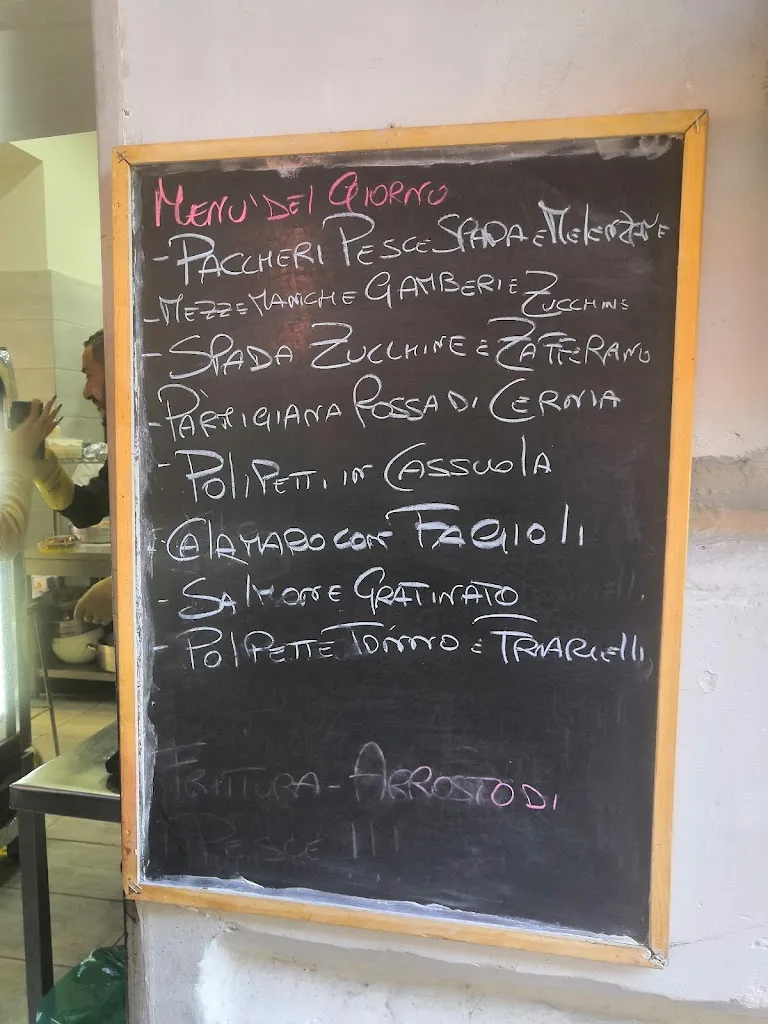 MENU' DEL GIORNO
- PACCHERI PESCE SPADA E MELENZANE
- MEZZE MANICHE GAMBERI E ZUCCHINE
- SPADA ZUCCHINE E ZAFFERANO
- PARMIGIANA ROSSA DI CERNIA
- POLIPETTI IN CASSUOLA
- CALAMARO CON FAGIOLI
- SALMONE GRATINATO
- POLPETTE TONNO E FRIARIELLI
FRITTURA - ARROSTO DI
PESCE !!!